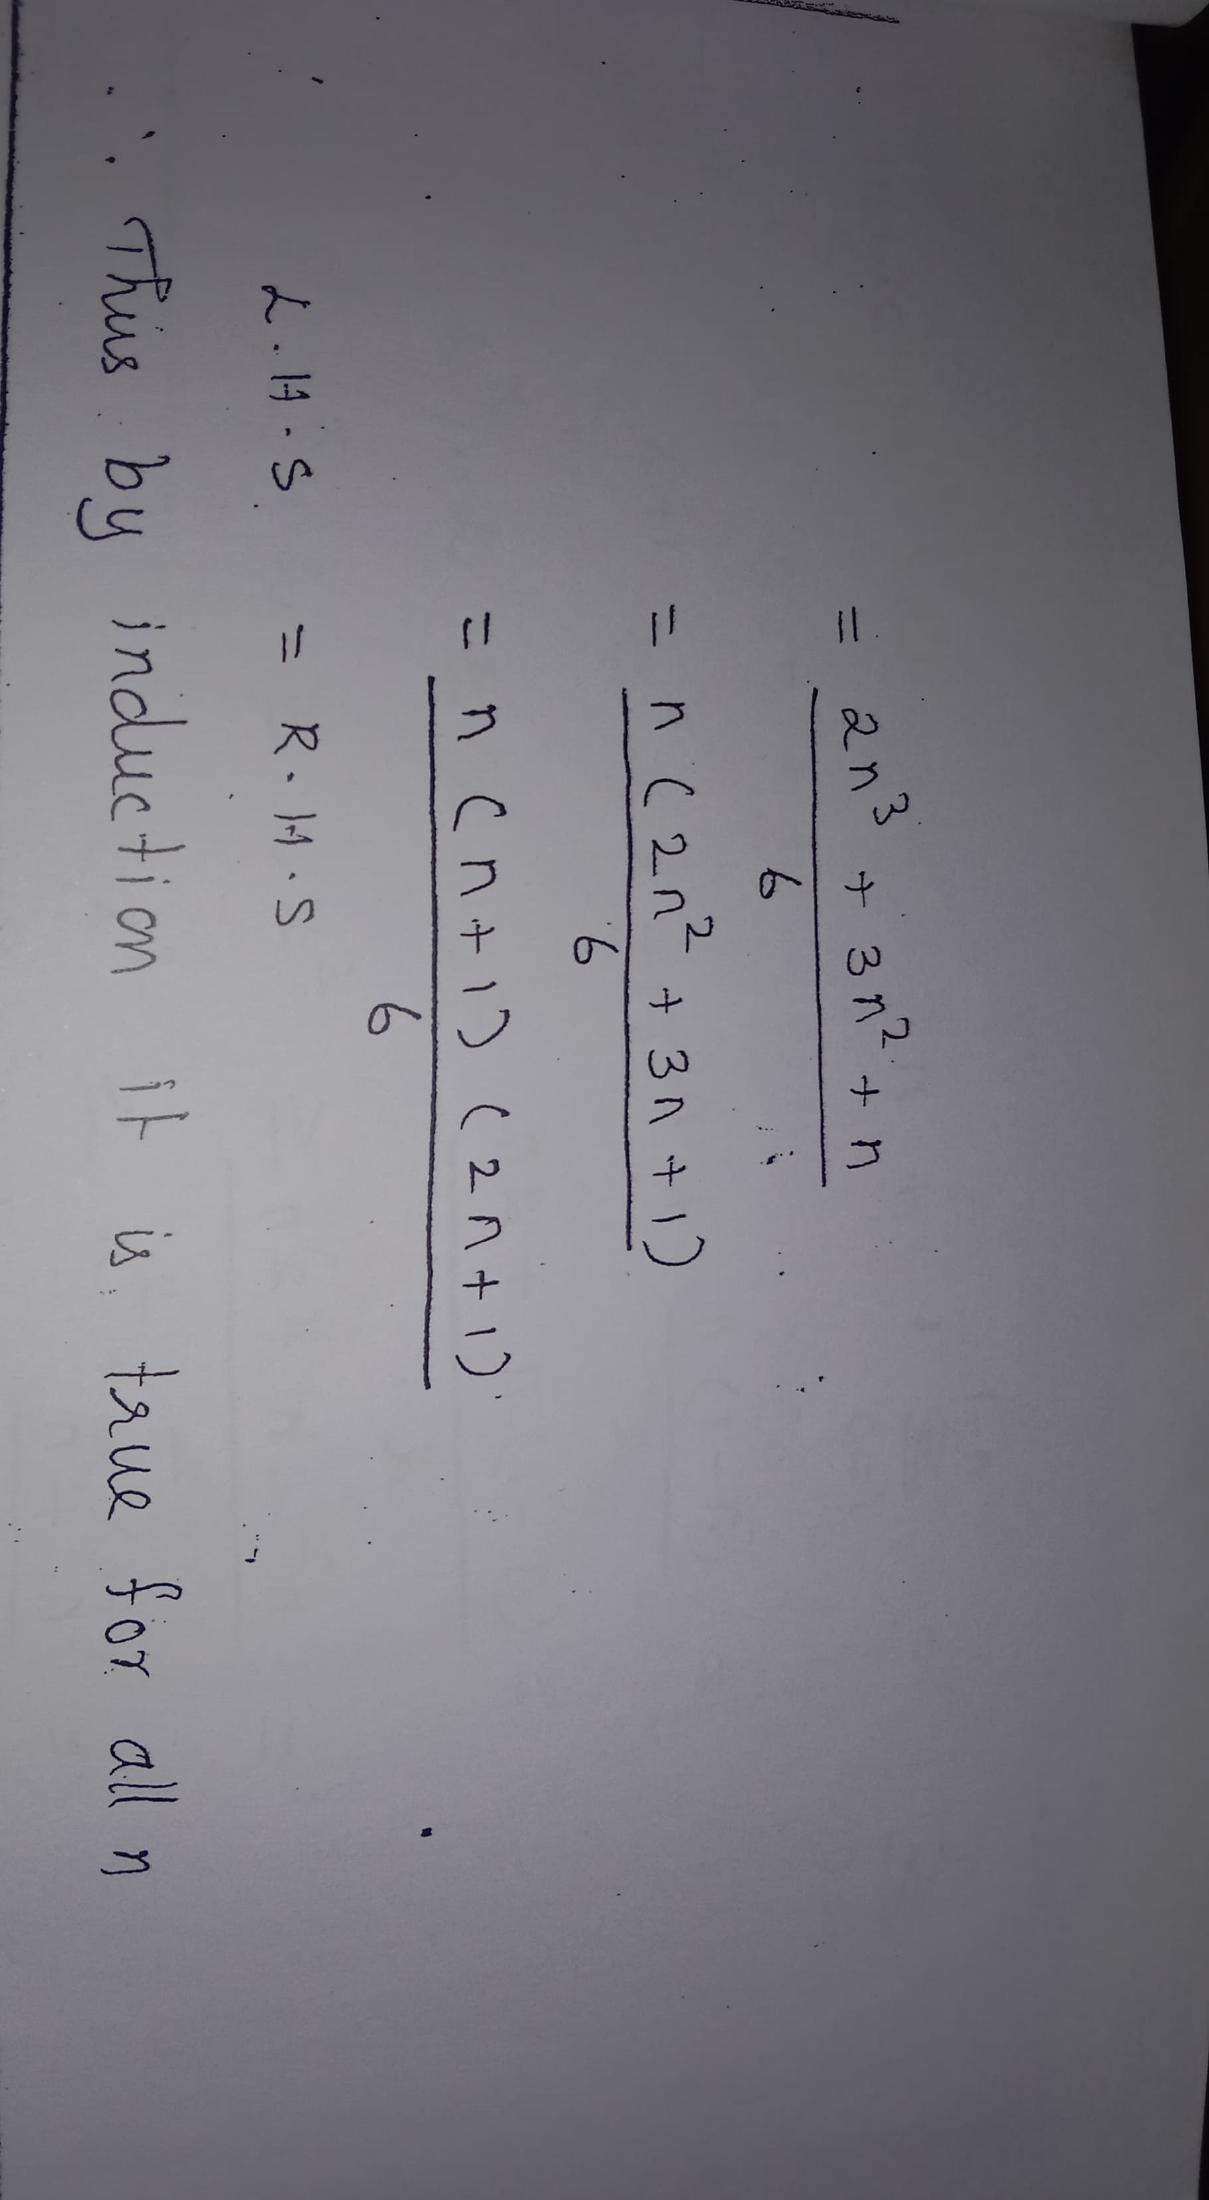 = 2n³ + 3n² + n
6
= n (2n² + 3n + 1)
6
= n (n+1) (2n+1)
6
L.H.S = R.H.S
∴ This by induction it is true for all n